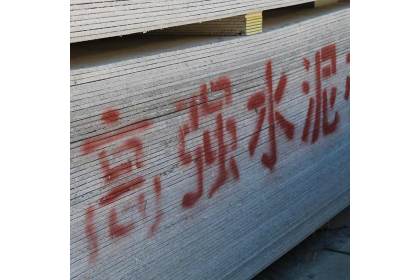 高强水泥